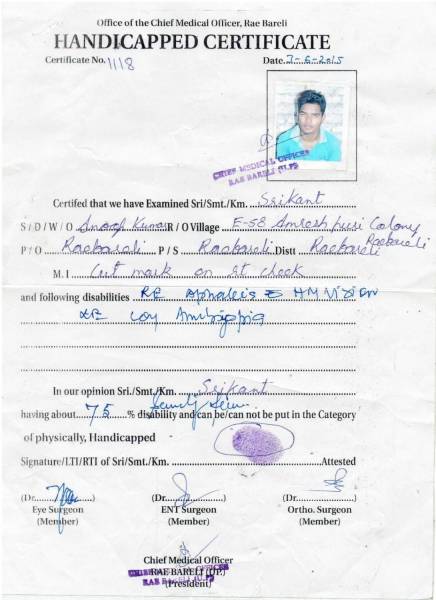 Office of the Chief Medical Officer, Rae Bareli
HANDICAPPED CERTIFICATE
Certificate No. 1118 Date. 7-6-2015
CHIEF MEDICAL OFFICER
RAE BARELI (U.P.)
Certifed that we have Examined Sri/Smt./Km. Srikant
S / D / W / O Anoop Kumar R / O Village E-58 Amresh puri Colony
P / O Raebareli P / S Raebareli Distt Raebareli Raebareli
M. I Cut mark on rt cheek
and following disabilities RE HM vision
LE
In our opinion Sri./Smt./Km. Srikant
having about 75 % disability and can/be/can/not be put in the Category
of physically, Handicapped
Signature/LTI/RTI of Sri/Smt./Km. Attested
(Dr. ) (Dr. ) (Dr. )
Eye Surgeon ENT Surgeon Ortho. Surgeon
(Member) (Member) (Member)
Chief Medical Officer
CHIEF MEDICAL OFFICER
RAE BARELI (UP.)
RAE BARELI (U.P.)
(President)